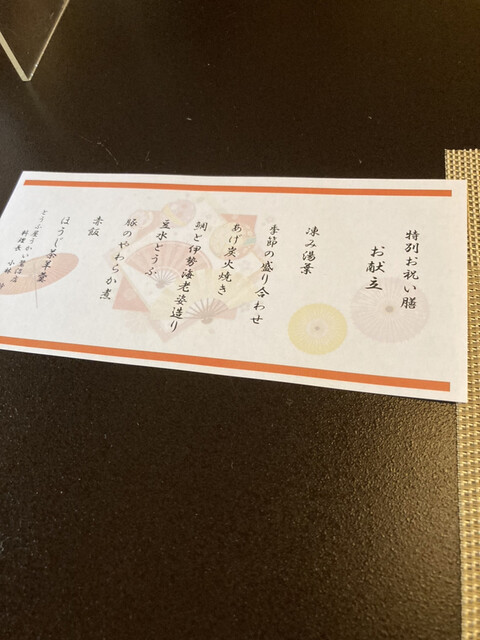 特別お祝い膳
お献立
凍み湯葉
季節の盛り合わせ
あげ炭火焼き
鯛と伊勢海老姿造り
豆水とうふ
豚のやわらか煮
赤飯
ほうじ茶羊羹
とうふ屋うかい鷺沼店
料理長 小林